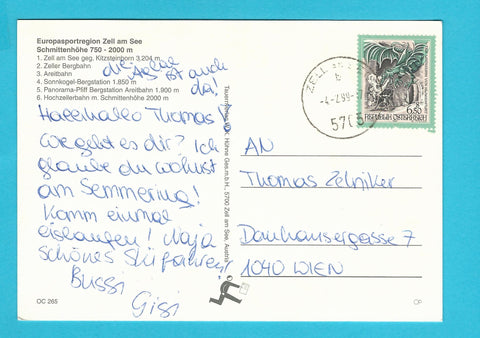 Europasportregion Zell am See
Schmittenhöhe 750 - 2000 m
1. Zell am See geg. Kitzsteinhorn 3.204 m
2. Zeller Bergbahn
3. Areitbahn
4. Sonnkogel-Bergstation 1.850 m
5. Panorama-Pfiff Bergstation Areitbahn 1.900 m
6. Hochzellerbahn m. Schmittenhöhe 2000 m
die
ist auch
da!
Hallo Thomas!
Wie geht es dir? Ich
glaube du wohnst
am Semmering!
Komm einmal
eislaufen! Naja
schönes Skifahren!
Bussi
Gisi
OC 265
Hühne Ges.m.b.H., 5700 Zell am See, Austria
ZELL
5700
6.50
REPUBLIK ÖSTERREICH
AN
Thomas Zelniker
Danhausergasse 7
1040 WIEN
CP